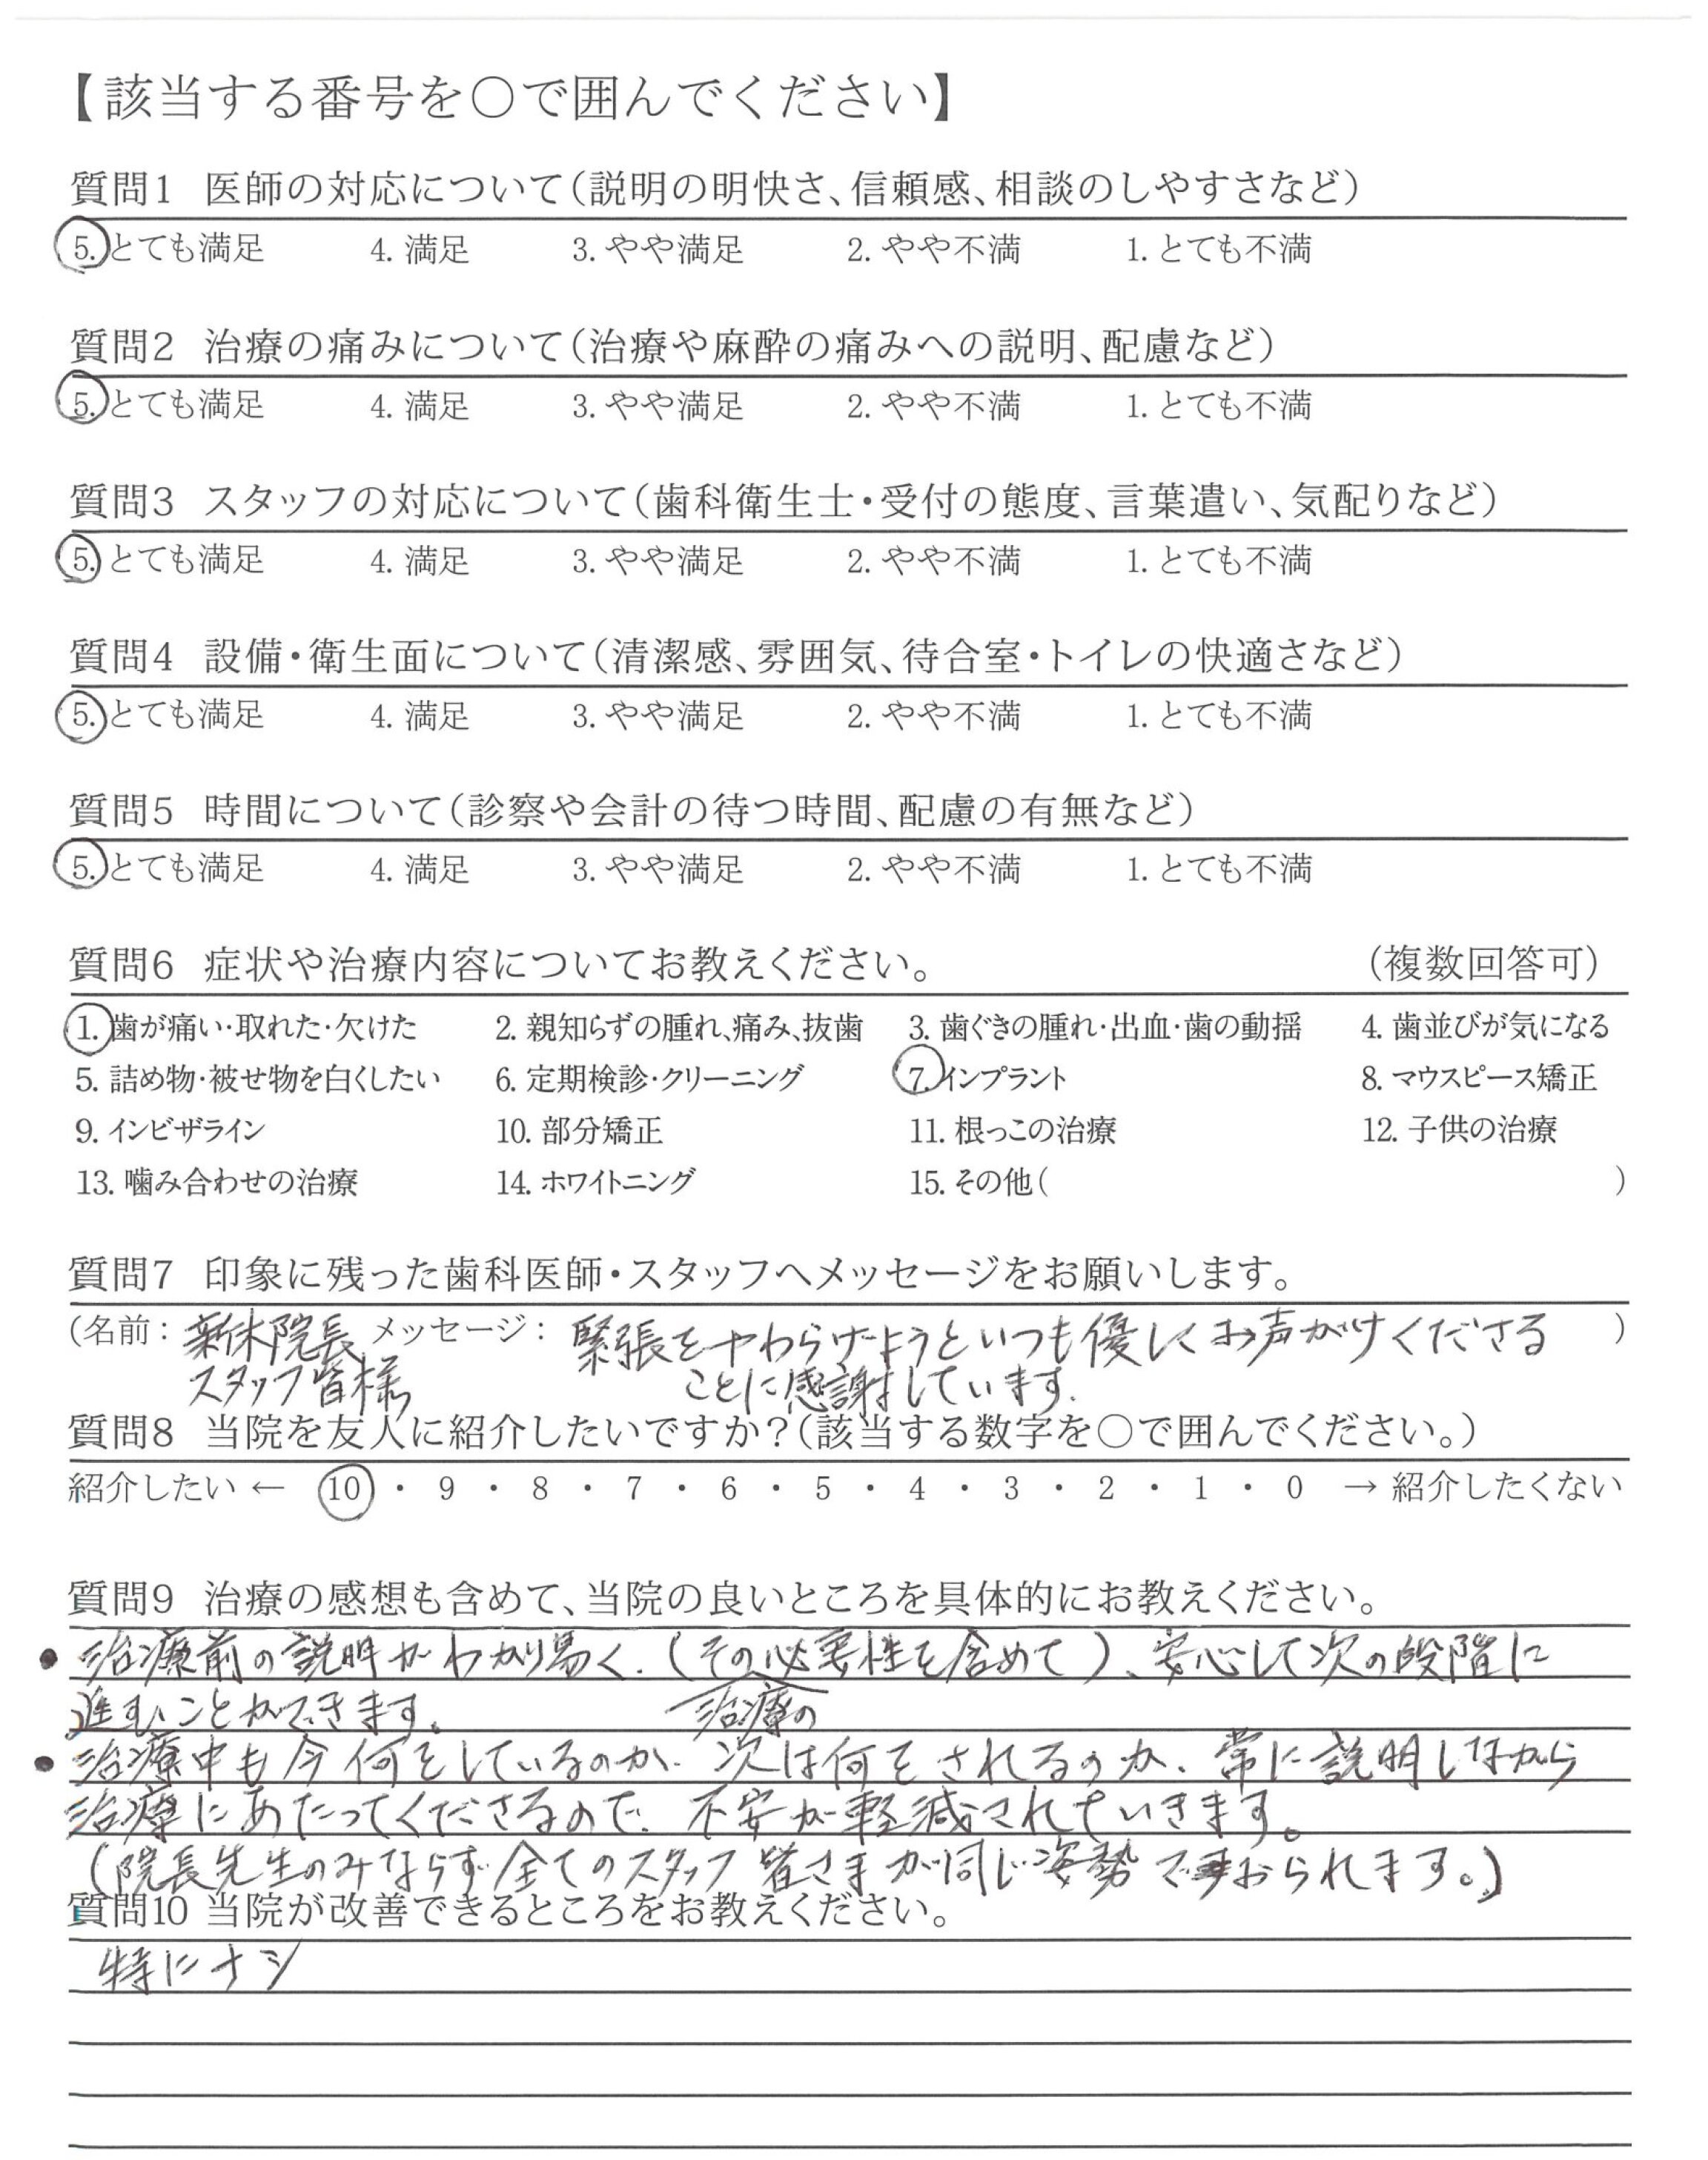 【該当する番号を〇で囲んでください】
質問1 医師の対応について（説明の明快さ、信頼感、相談のしやすさなど）
5. とても満足 4. 満足 3. やや満足 2. やや不満 1. とても不満
質問2 治療の痛みについて（治療や麻酔の痛みへの説明、配慮など）
5. とても満足 4. 満足 3. やや満足 2. やや不満 1. とても不満
質問3 スタッフの対応について（歯科衛生士・受付の態度、言葉遣い、気配りなど）
5. とても満足 4. 満足 3. やや満足 2. やや不満 1. とても不満
質問4 設備・衛生面について（清潔感、雰囲気、待合室・トイレの快適さなど）
5. とても満足 4. 満足 3. やや満足 2. やや不満 1. とても不満
質問5 時間について（診察や会計の待つ時間、配慮の有無など）
5. とても満足 4. 満足 3. やや満足 2. やや不満 1. とても不満
質問6 症状や治療内容についてお教えください。 （複数回答可）
1. 歯が痛い・取れた・欠けた 2. 親知らずの腫れ、痛み、抜歯 3. 歯ぐきの腫れ・出血・歯の動揺 4. 歯並びが気になる
5. 詰め物・被せ物を白くしたい 6. 定期検診・クリーニング 7. インプラント 8. マウスピース矯正
9. インビザライン 10. 部分矯正 11. 根っこの治療 12. 子供の治療
13. 噛み合わせの治療 14. ホワイトニング 15. その他（ ）
質問7 印象に残った歯科医師・スタッフへメッセージをお願いします。
（名前： 院長 メッセージ： 緊張をやわらげようといつも優しくお声がけくださる ）
スタッフ皆様 ことに感謝しています.
質問8 当院を友人に紹介したいですか？（該当する数字を〇で囲んでください。）
紹介したい ← 10 ・ 9 ・ 8 ・ 7 ・ 6 ・ 5 ・ 4 ・ 3 ・ 2 ・ 1 ・ 0 → 紹介したくない
質問9 治療の感想も含めて、当院の良いところを具体的にお教えください。
• 治療前の説明がわかり易く、（その必要性を含めて）、安心して次の段階に
進むことができます。 治療の
• 治療中も今何をしているのか、次は何をされるのか、常に説明しながら
治療にあたってくださるので、不安が軽減されていきます。
（院長先生のみならず全てのスタッフ皆さまが同じ姿勢でおられます。）
質問10 当院が改善できるところをお教えください。
特にナシ